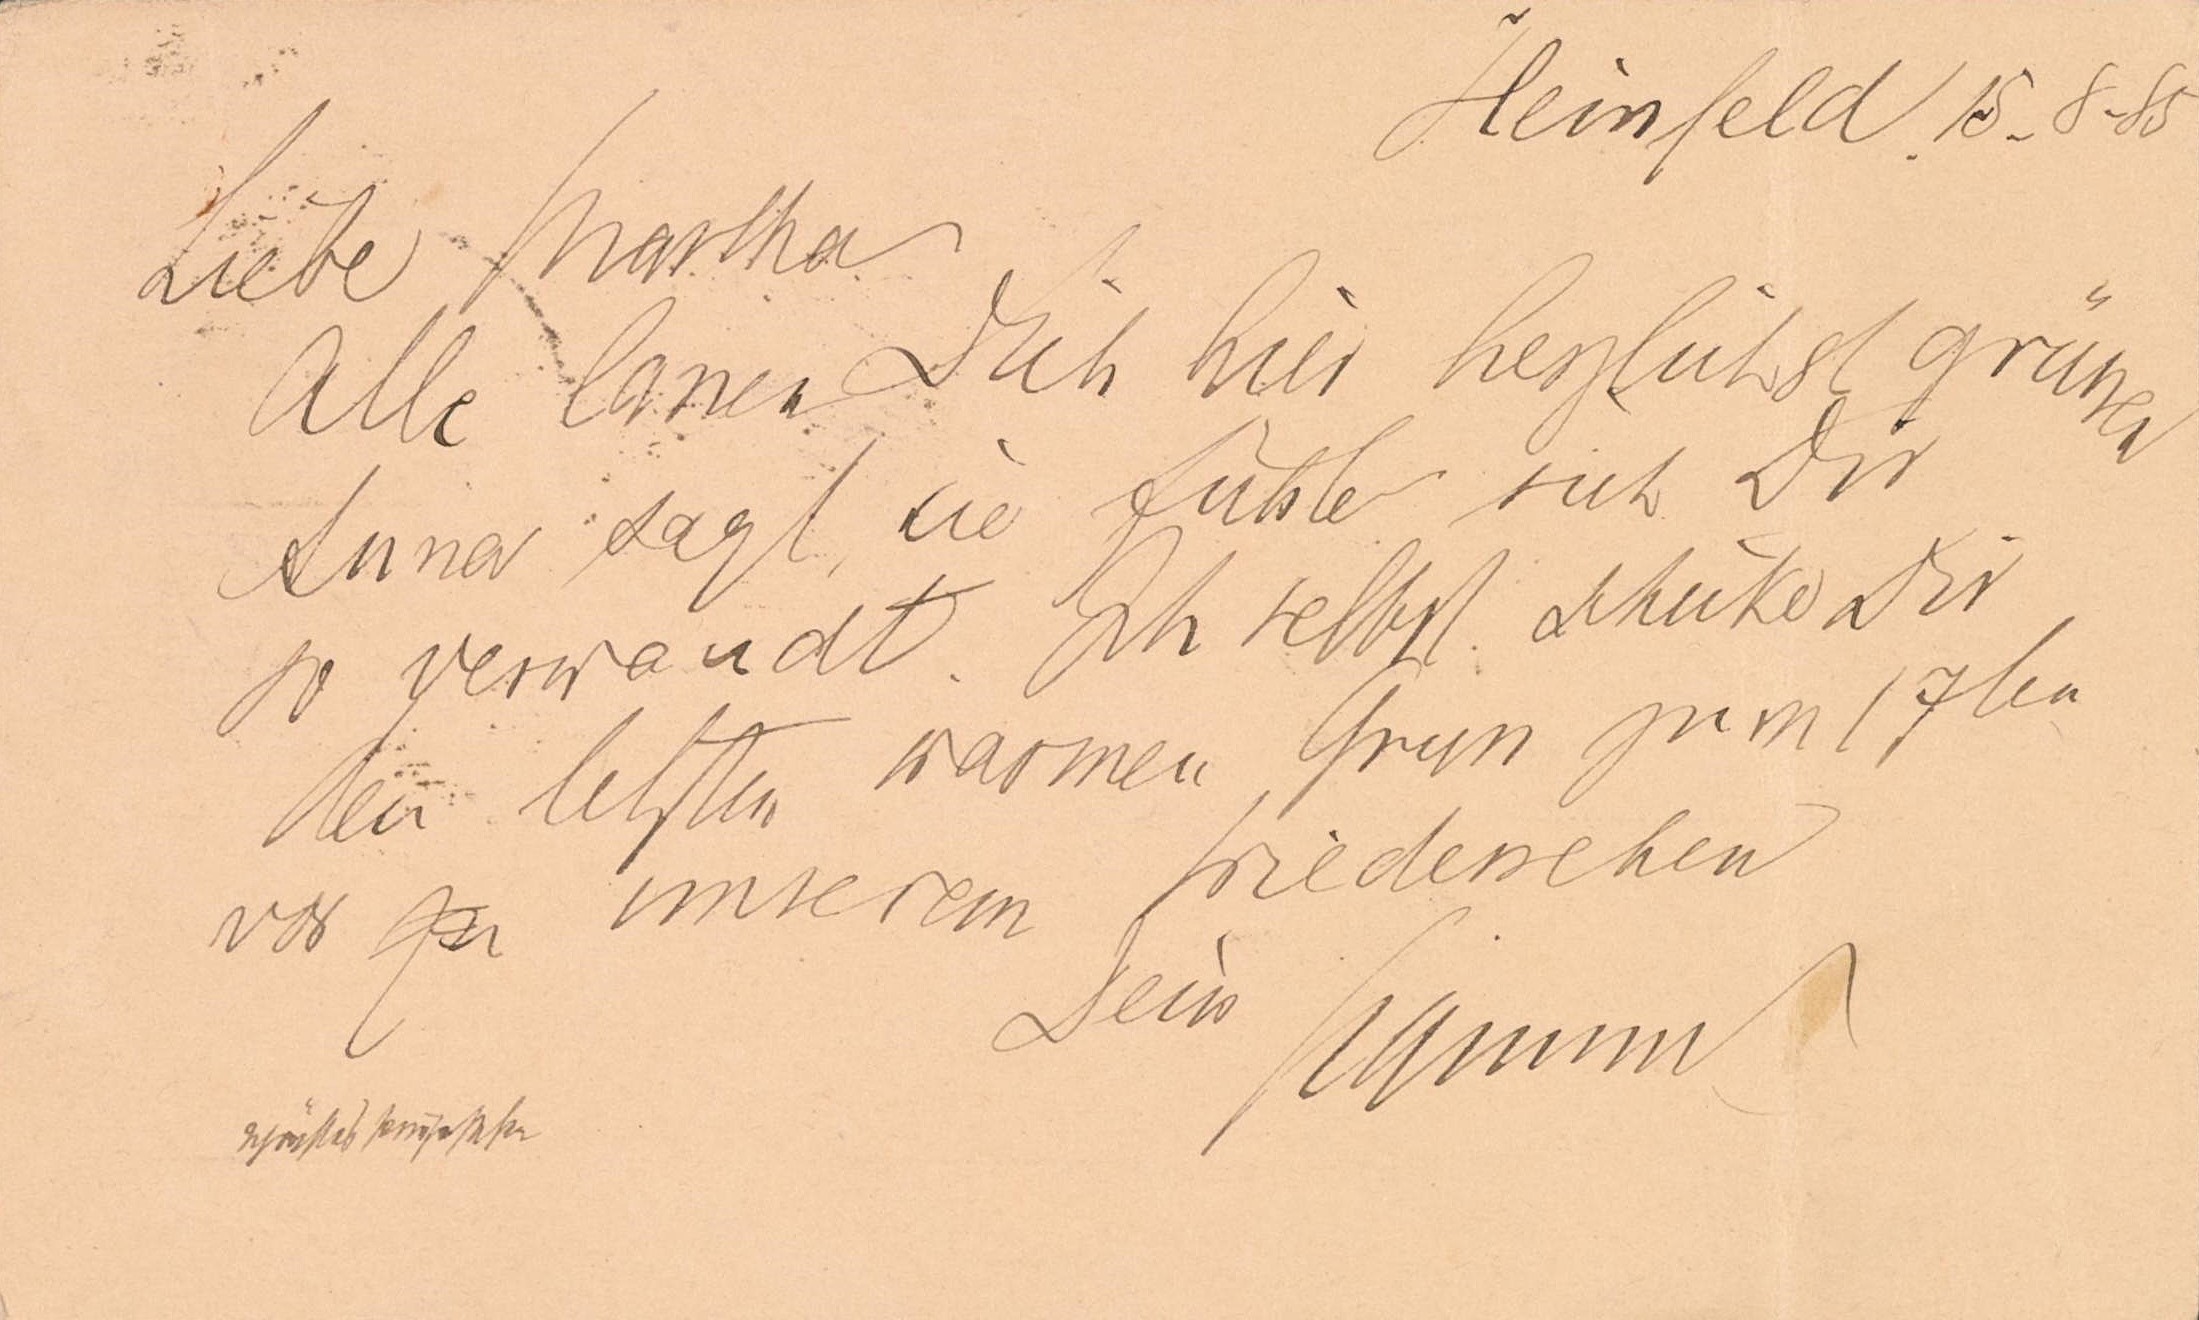 Heinfeld. 15-8-85
Liebe Martha
Alle lassen Dich hier herzlichst grüssen
Anna sagt, sie fühle sich Dir
so verwandt. Ich selbst schicke Dir
den letzten warmen Gruss zum 17ten
vor unserem Wiedersehen
Dein